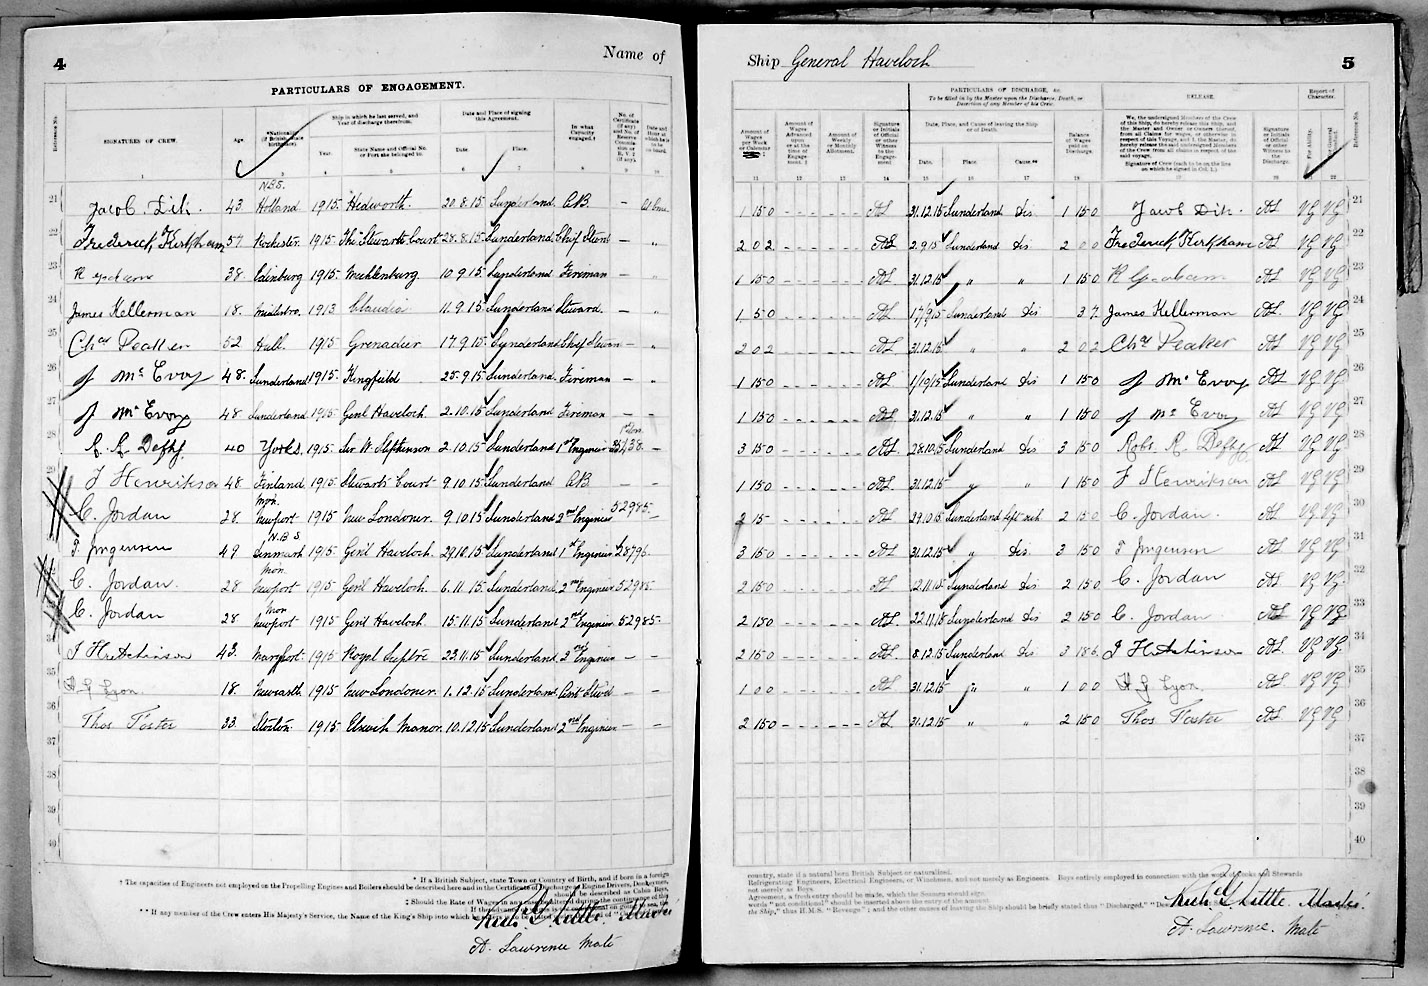 4
Name of
PARTICULARS OF ENGAGEMENT.
Reference No.
SIGNATURES OF CREW.
Age.
*Nationality (if British, state birthplace).
Ship in which he last served, and Year of discharge therefrom.
Year.
State Name and Official No. or Port she belonged to.
Date and Place of signing this Agreement.
Date.
Place.
In what Capacity engaged.†
No. of Certificate (if any) and No. of Reserve Commission or R.V.2 (if any).
Date and Hour at which he is to be on board.
1 2 3 4 5 6 7 8 9 10
21 Jacob Dik. 43 N.B.S. Holland 1915 Hedworth. 20.8.15 Sunderland A.B. – At Once
22 Frederick Kirkham 57 Rochester 1915 The Stewarts Court 28.8.15 Sunderland Chif Stew – "
23 R Graham 38 Edinburg 1915 Mecklenburg. 10.9.15 Sunderland Fireman – "
24 James Kellerman 18. Midlsbro. 1913 Claudia 11.9.15 Sunderland Steward. – "
25 Chas Peaker 52 Hull. 1915 Grenadier 17.9.15 Sunderland Chif Stew – "
26 J McEvoy 48 Sunderland 1915 Kingfield 25.9.15 Sunderland Fireman – "
27 J McEvoy 48 Sunderland 1915 Genl Havelock 2.10.15 Sunderland Fireman – –
28 R. R. Defty 40 Yorks. 1915 Sir W. Stephenson 2.10.15 Sunderland 1st Engineer –
29 F Henrikson 48 Finland 1915 Stewarts Court 9.10.15 Sunderland A.B. – –
30 C. Jordan 28. Mon. Newport 1915 New Londoner. 9.10.15 Sunderland 2nd Engineer 52985.
31 J. Jorgensen 49 N.B.S Denmark 1915 Gen'l Havelock. 29.10.15 Sunderland 1st Engineer 28796.
32 C. Jordan. 28 Mon. Newport 1915 Gen'l Havelock 6.11.15 Sunderland 2nd Engineer 52985.
33 C. Jordan 28 Mon Newport 1915 Gen'l Havelock. 15.11.15 Sunderland 2nd Engineer 52985.
34 J Hutchinson 43. Maryport. 1915 Royal Sceptre 23.11.15 Sunderland 2nd Engineer – –
35 H G Lyon. 18. Newcastle 1915 New Londoner. 1.12.15 Sunderland Asst Stew'd – –
36 Thos Foster 33 1915 Elswick Manor. 10.12.15 Sunderland 2nd Engineer – –
37
38
39
40
* If a British Subject, state Town or Country of Birth, and if born in a foreign
† The capacities of Engineers not employed on the Propelling Engines and Boilers should be described here and in the Certificate of Discharge
‡ Should the Rate of Wages
** If any member of the Crew enters His Majesty's Service, the Name of the King's Ship into which
Little Master
A. Lawrence Mate
Ship General Havelock
5
PARTICULARS OF DISCHARGE, &c.
To be filled in by the Master upon the Discharge, Death, or Desertion of any Member of his Crew.
RELEASE.
Report of Character.
Amount of Wages per Week or Calendar
Amount of Wages Advanced upon or at the time of Engagement.‡
Amount of Weekly or Monthly Allotment.
Signature or Initials of Official or other Witness to the Engagement
Date, Place, and Cause of leaving the Ship or of Death.
Date.
Place.
Cause.**
Balance of Wages paid on Discharge.
We, the undersigned Members of the Crew of this Ship, do hereby release this Ship, and the Master and Owner or Owners thereof, from all Claims for wages, or otherwise in respect of this Voyage, and I, the Master, do hereby release the said undersigned Members of the Crew from all claims in respect of the said voyage.
Signature of Crew (each to be on the line on which he signed in Col. 1.)
Signature or Initials of Official or other Witness to Discharge
For Ability.
General Conduct.
Reference No.
11 12 13 14 15 16 17 18 19 20 21 22
1 15 0 AL 31.12.15 Sunderland Dis. 1 15 0 Jacob Dik. AL VG VG 21
2 0 2 AL 2.9.15 Sunderland Dis 2 0 0 Frederick Kirkham AL VG VG 22
1 15 0 AL 31.12.15 " " 1 15 0 R Graham AL VG VG 23
1 5 0 AL 17/9/15 Sunderland Dis 3 7. James Kellerman AL. VG VG 24
2 0 2 AL 31.12.15 " " 2 0 2 Chas Peaker AL VG VG 25
1 15 0 AL 1/10/15 Sunderland Dis 1 15 0 J McEvoy AL VG VG 26
1 15 0 AL 31.12.15 " " 1 15 0 J McEvoy AL VG VG 27
3 15 0 AL. 28.10.15 Sunderland Dis 3 15 0 Robt R. Defty AL VG VG 28
1 15 0 AL 31.12.15 " " 1 15 0 F Henrikson AL VG VG 29
2 15 – AL 29.10.15 Sunderland Left sick 2 15 0 C. Jordan. AL VG VG 30
3 15 0 AL 31.12.15 " Dis. 3 15 0 J Jorgensen AL VG VG 31
2 15 0 AL 12.11.15 Sunderland Dis 2 15 0 C. Jordan AL VG VG 32
2 15 0 AL. 22.11.15 Sunderland Dis 2 15 0 C. Jordan AL VG VG 33
2 15 0 AL. 8.12.15 Sunderland Dis 3 18 6. J Hutchinson AL. VG VG. 34
1 0 0 AL 31.12.15 " " 1 0 0 H G Lyon. AL VG VG 35
2 15 0 AL 31.12.15 " " 2 15 0 Thos Foster AL VG VG 36
37
38
39
40
country, state if a natural born British Subject or naturalized.
Refrigerating Engineers, Electrical Engineers, or Winchmen, and not merely as Engineers. Boys entirely employed in connection with the work of Cooks and Stewards
not merely as Boys.
Agreement, a fresh entry should be made, which the Seamen should sign.
words "not conditional" should be inserted above the entry of the amount.
the Ship," thus H.M.S. "Revenge"; and the other causes of leaving the Ship should be briefly stated thus "Discharged,"
Little. Master.
A. Lawrence. Mate